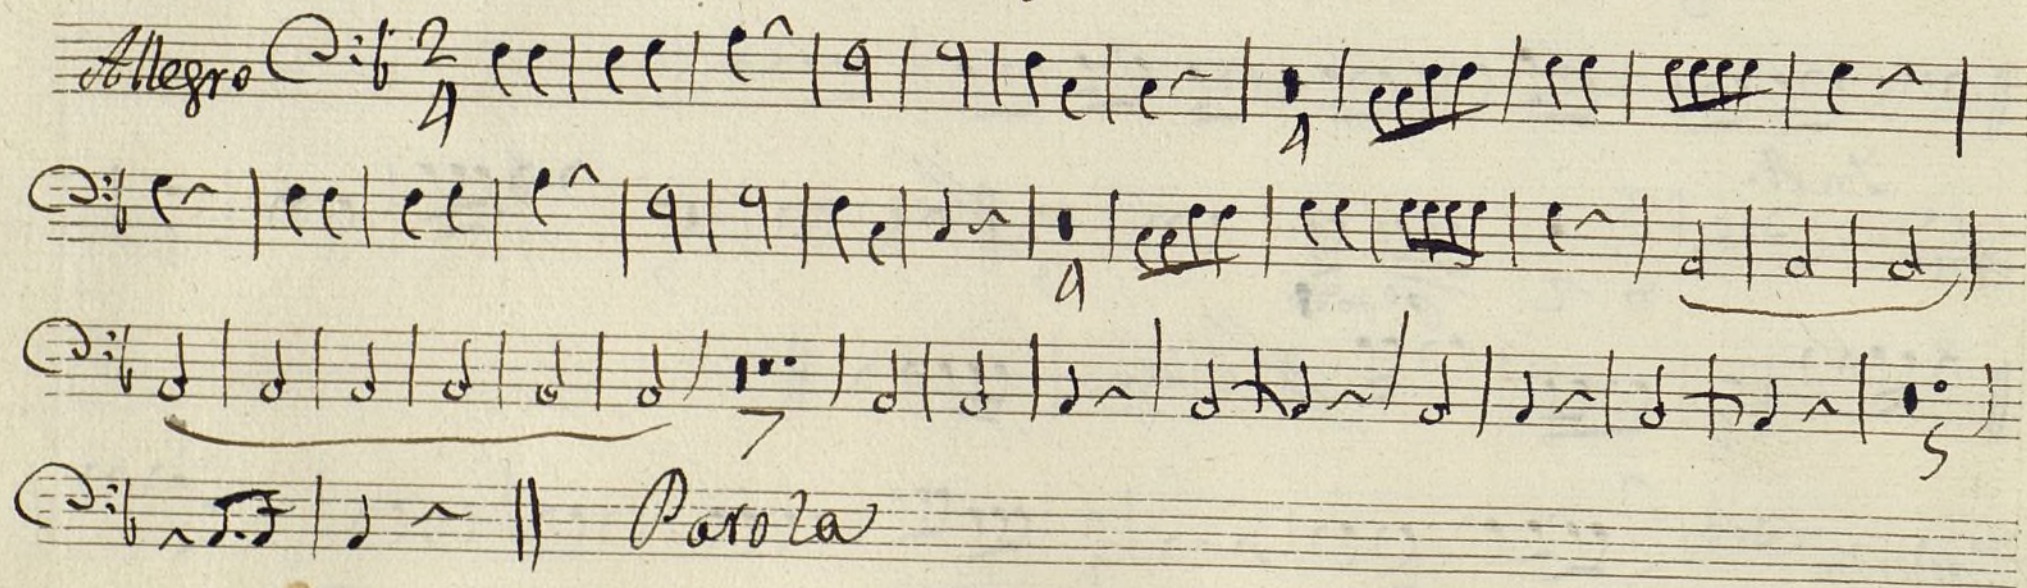 Allegro 2
4
4
4
7
5
Parola